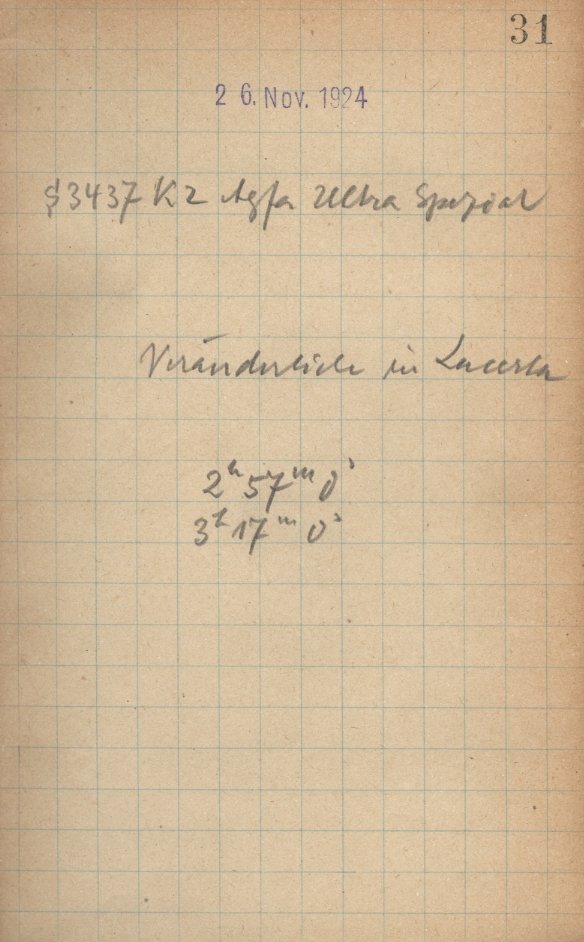 31
26. Nov. 1924
§3437 K2 Agfa Ultra Spezial
Veränderliche in Lacerta
2ʰ 57ᵐ 0ˢ
3ʰ 17ᵐ 0ˢ